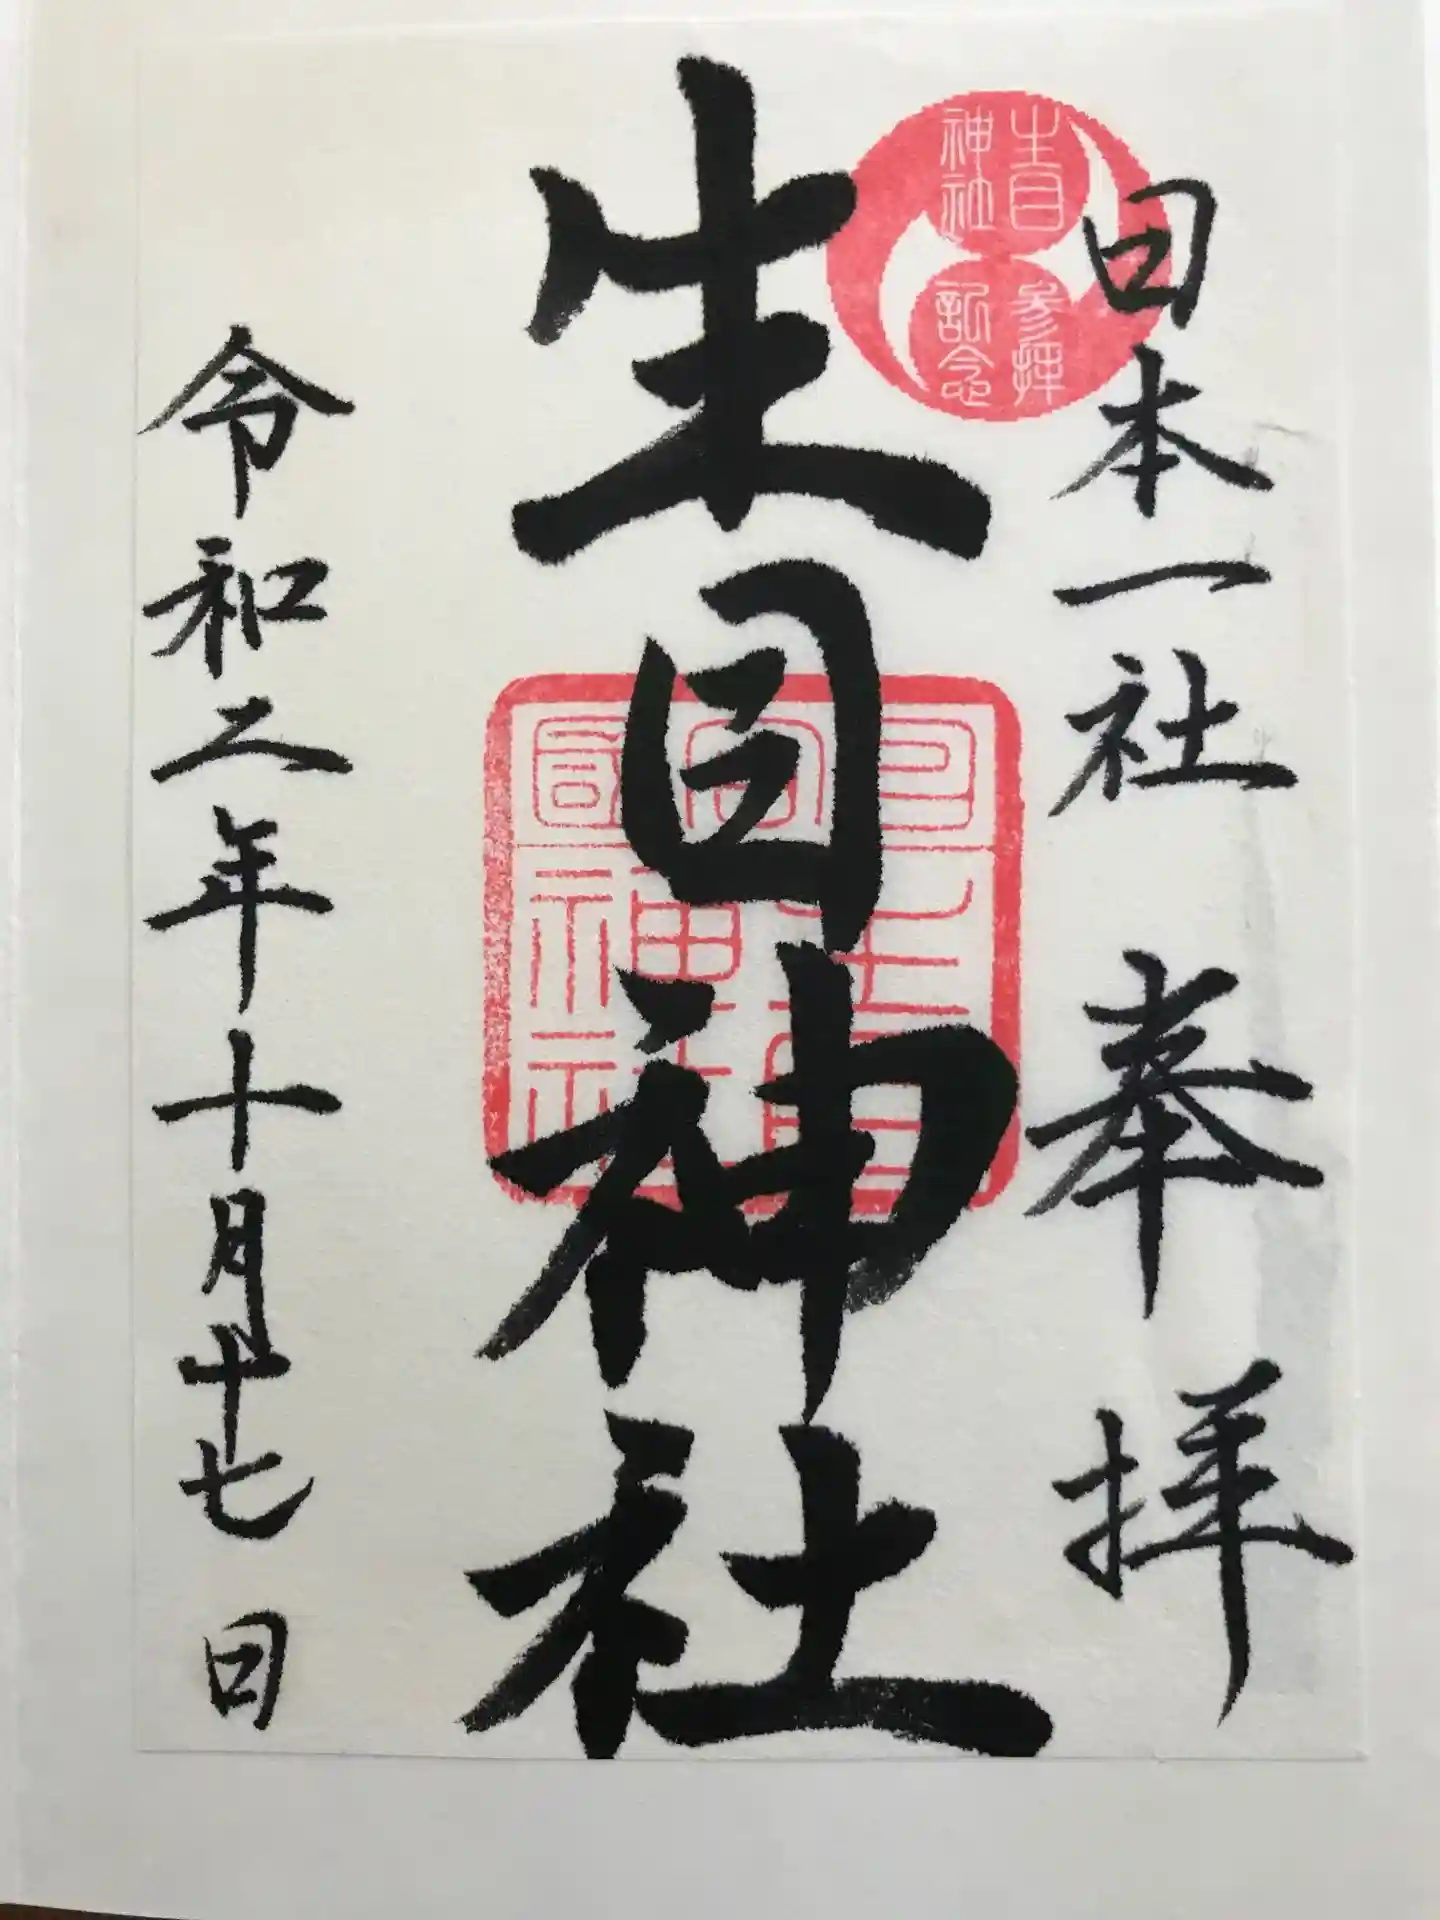 日本一社 奉拝
生目
神社
参拝
記念
生目神社
日向
國
生目
神社
令和二年十月十七日